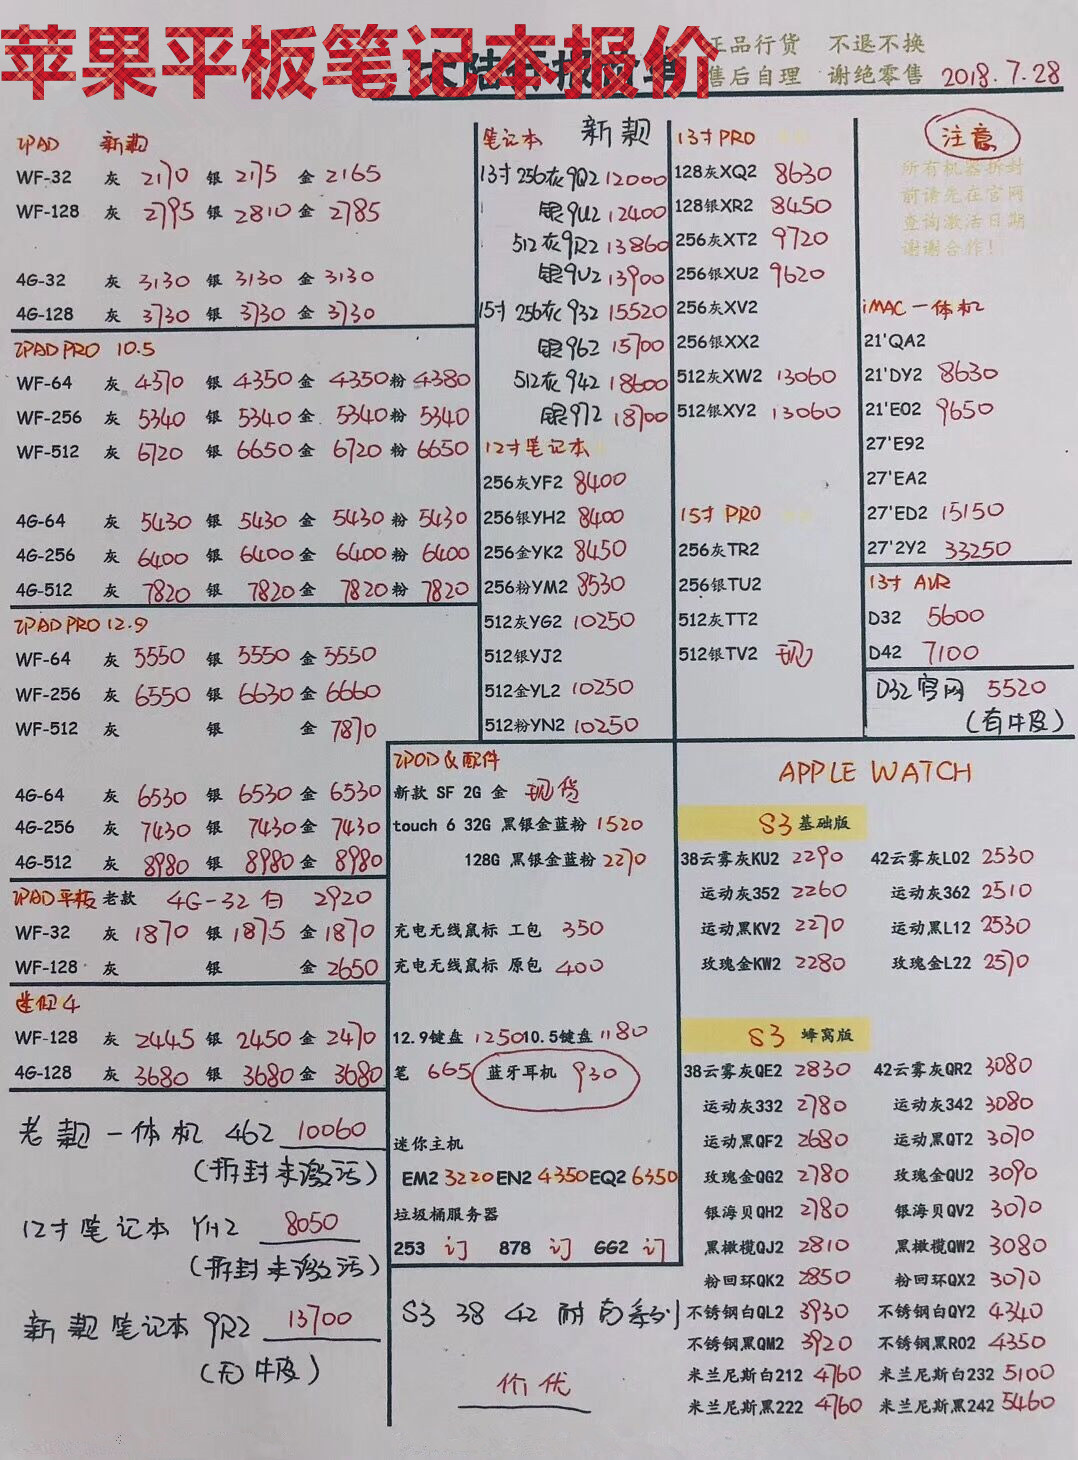 苹果平板笔记本报价
大陆行报价单
正品行货 不退不换
售后自理 谢绝零售 2018.7.28
IPAD 新款
WF-32 灰 2170 银 2175 金 2165
WF-128 灰 2795 银 2810 金 2785
4G-32 灰 3130 银 3130 金 3130
4G-128 灰 3730 银 3730 金 3730
IPAD PRO 10.5
WF-64 灰 4370 银 4350 金 4350 粉 4380
WF-256 灰 5340 银 5340 金 5340 粉 5340
WF-512 灰 6720 银 6650 金 6720 粉 6650
4G-64 灰 5430 银 5430 金 5430 粉 5430
4G-256 灰 6400 银 6400 金 6400 粉 6400
4G-512 灰 7820 银 7820 金 7820 粉 7820
IPAD PRO 12.9
WF-64 灰 5550 银 5550 金 5550
WF-256 灰 6550 银 6630 金 6660
WF-512 灰 银 金 7870
4G-64 灰 6530 银 6530 金 6530
4G-256 灰 7430 银 7430 金 7430
4G-512 灰 8980 银 8980 金 8980
IPAD平板 老款 4G-32 白 2920
WF-32 灰 1870 银 1875 金 1870
WF-128 灰 银 金 2650
迷你4
WF-128 灰 2445 银 2450 金 2470
4G-128 灰 3680 银 3680 金 3680
老款一体机 462 10060
(拆封未激活)
12寸笔记本 YH2 8050
(拆封未激活)
新款笔记本 9R2 13700
(无牛皮)
笔记本 新款
13寸 256灰9Q2 12000
银9U2 12400
512灰9R2 13860
银9V2 13900
15寸 256灰932 15520
银962 15700
512灰942 18600
银972 18700
12寸笔记本
256灰YF2 8400
256银YH2 8400
256金YK2 8450
256粉YM2 8530
512灰YG2 10250
512银YJ2
512金YL2 10250
512粉YN2 10250
13寸PRO
128灰XQ2 8630
128银XR2 8450
256灰XT2 9720
256银XU2 9620
256灰XV2
256银XX2
512灰XW2 13060
512银XY2 13060
15寸PRO
256灰TR2
256银TU2
512灰TT2
512银TV2 现
注意
所有机器拆封
前请先在官网
查询激活日期
谢谢合作!
iMAC一体机
21'QA2
21'DY2 8630
21'E02 9650
27'E92
27'EA2
27'ED2 15150
27'2Y2 33250
13寸 AIR
D32 5600
D42 7100
D32官网 5520
(有牛皮)
IPOD & 配件
新款 SF 2G 金 现货
touch 6 32G 黑银金蓝粉 1520
128G 黑银金蓝粉 2270
充电无线鼠标 工包 350
充电无线鼠标 原包 400
12.9键盘 1250 10.5键盘 1180
笔 665 蓝牙耳机 930
迷你主机
EM2 3220 EN2 4350 EQ2 6350
垃圾桶服务器
253 订 878 订 GG2 订
S3 38 42 耐克系列
价优
APPLE WATCH
S3 基础版
38云雾灰KU2 2290 42云雾灰L02 2530
运动灰352 2260 运动灰362 2510
运动黑KV2 2270 运动黑L12 2530
玫瑰金KW2 2280 玫瑰金L22 2570
S3 蜂窝版
38云雾灰QE2 2830 42云雾灰QR2 3080
运动灰332 2780 运动灰342 3080
运动黑QF2 2680 运动黑QT2 3070
玫瑰金QG2 2780 玫瑰金QU2 3090
银海贝QH2 2780 银海贝QV2 3070
黑橄榄QJ2 2810 黑橄榄QW2 3080
粉回环QK2 2850 粉回环QX2 3070
不锈钢白QL2 3930 不锈钢白QY2 4340
不锈钢黑QM2 3920 不锈钢黑R02 4350
米兰尼斯白212 4760 米兰尼斯白232 5100
米兰尼斯黑222 4760 米兰尼斯黑242 5460